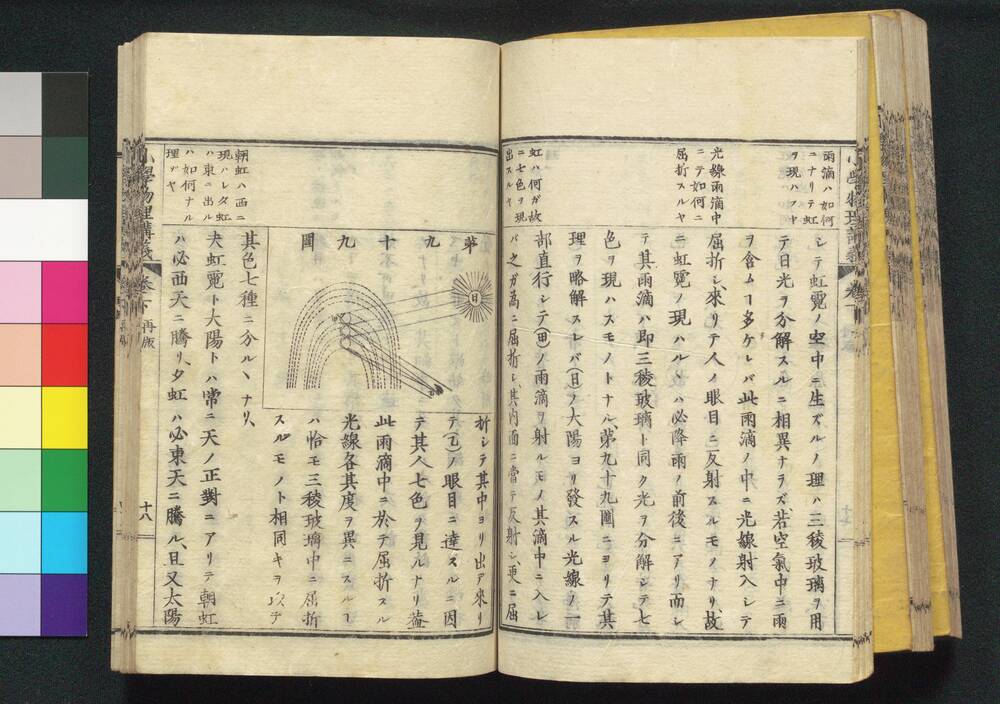 雨滴ハ如何
ニナリテ虹
ヲ現ハスヤ
光線雨滴中
ニテ如何ニ
屈折スルヤ
虹ハ何ガ故
ニ七色ヲ現
出スルヤ
シテ虹霓ノ空中ニ生ズルノ理ハ三稜玻璃ヲ用
テ日光ヲ分解スルニ相異ナラズ若空氣中ニ雨
ヲ含ムヿ多ケレバ此雨滴ノ中ニ光線射入シテ
屈折シ來リテ人ノ眼目ニ反射スルモノナリ、故
ニ虹霓ノ現ハルヽハ必降雨ノ前後ニアリ而シ
テ其雨滴ハ即三稜玻璃ト同ク光ヲ分解シテ七
色ヲ現ハスモノトナル、第九十九圖ニヨリテ其
理ヲ略解スレバ(日)ノ大陽ヨリ發スル光線ノ一
部直行シテ(甲)ノ雨滴ヲ射ルモノ其滴中ニ入レ
バ之ガ爲ニ屈折シ、其内面ニ當テ反射シ、更ニ屈
小學物理講義
卷下
朝虹ハ西ニ
現ハレタ虹
ハ東ニ出ル
ハ如何ナル
理ゾヤ
第九十九圖
日
折シテ其中ヨリ出テ來リ
テ(乙)ノ眼目ニ達スルニ因
テ其人七色ヲ見ルナリ蓋
此雨滴中ニ於テ屈折スル
光線各其度ヲ異ニスルヿ
ハ恰モ三稜玻璃中ニ屈折
スルモノト相同キヲ以テ
其色七種ニ分ルヽナリ、
夫虹霓ト大陽トハ常ニ天ノ正對ニアリテ朝虹
ハ必西天ニ騰リ、夕虹ハ必東天ニ騰ル、且又太陽
小學物理講義
卷下
再版
十八